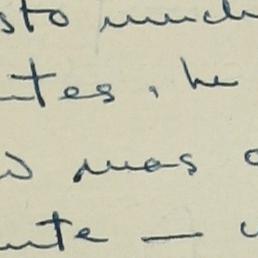 sto much
ntes, he
mas
nte —